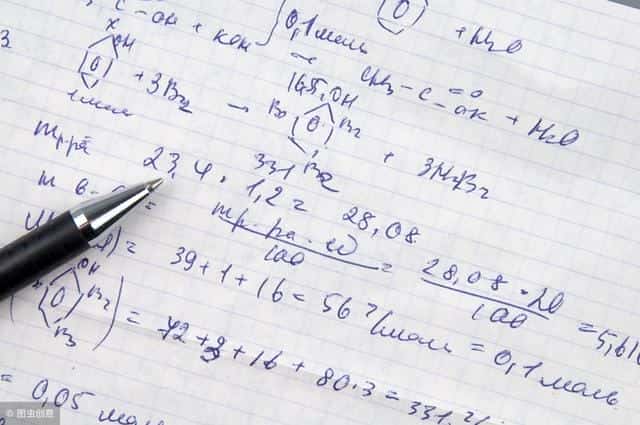 C - OH + KOH
0,1 моль
+ H2O
x
OH
3
+ 3Br2
CH3 - C - OK + H2O
=O
1 моль
165, OH
Br
Br
Br
+ 3HBr
331
mр-ра
23,4 · 1,2 = 28,08
mр-ра · ω / 100 = 28,08 · 20 / 100 = 5,616
) = 39 + 1 + 16 = 56 г/моль = 0,1 моль
OH
Br
Br
) = 72 + 3 + 16 + 80·3 = 331
= 0,05 моль
© 图虫创意